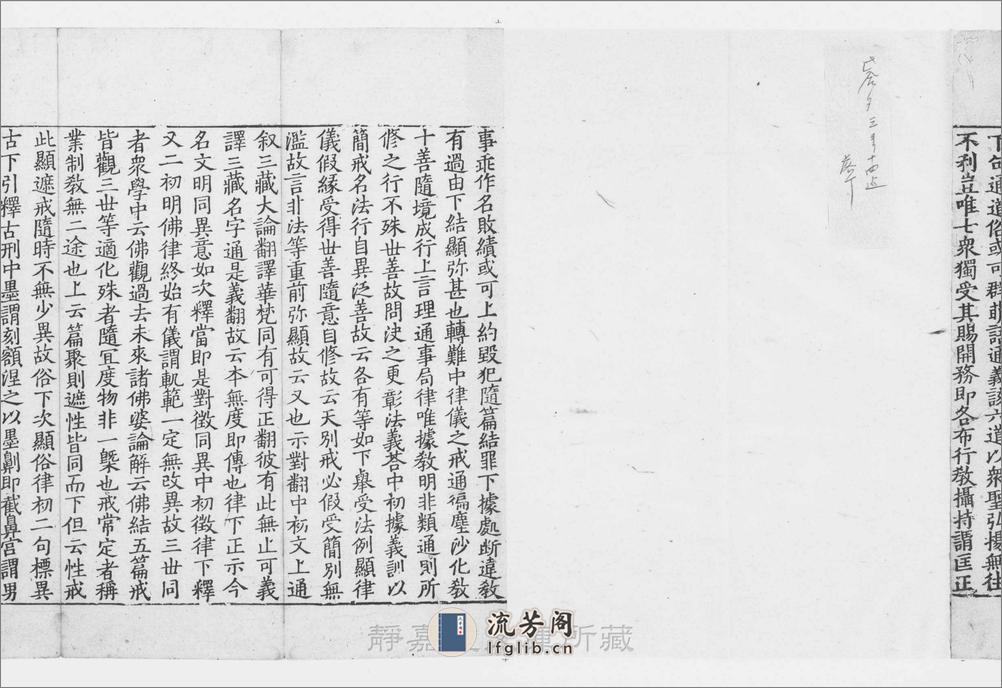 下句通道俗或可群萌語通義該六道以衆聖弘揚無往
不利豈唯七衆獨受其賜開務即各布行敎攝持謂匡正
事乖作名敗績或可上約毀犯隨篇結罪下據處断違敎
有過由下結顯弥甚也轉難中律儀之戒通徧塵沙化敎
十善隨境成行上言理通事局律唯據敎明非類通則所
修之行不殊世善故問决之更彰法義荅中初據義訓以
簡戒名法行自異泛善故云各有等如下舉受法例顯律
儀假緣受得世善隨意自修故云天別戒必假受簡別無
濫故言非法等重前弥顯故云又也示對翻中初文上通
叙三藏大論翻譯華梵同有可得正翻彼有此無止可義
譯三藏名字通是義翻故云本無度即傳也律下正示今
名文明同異意如次釋當即是對徵同異中初徵律下釋
又二初明佛律終始有儀謂軌範一定無改異故三世同
者衆學中云佛觀過去未來諸佛婆論解云佛結五篇戒
皆觀三世等適化殊者隨冝度物非一槩也戒常定者稱
業制敎無二途也上云篇聚則遮性皆同而下但云性戒
此顯遮戒隨時不無少異故俗下次顯俗律初二句標異
古下引釋古刑中墨謂刻額涅之以墨劓即截鼻宫謂男
靜嘉 所藏
流芳阁
lfglib.cn